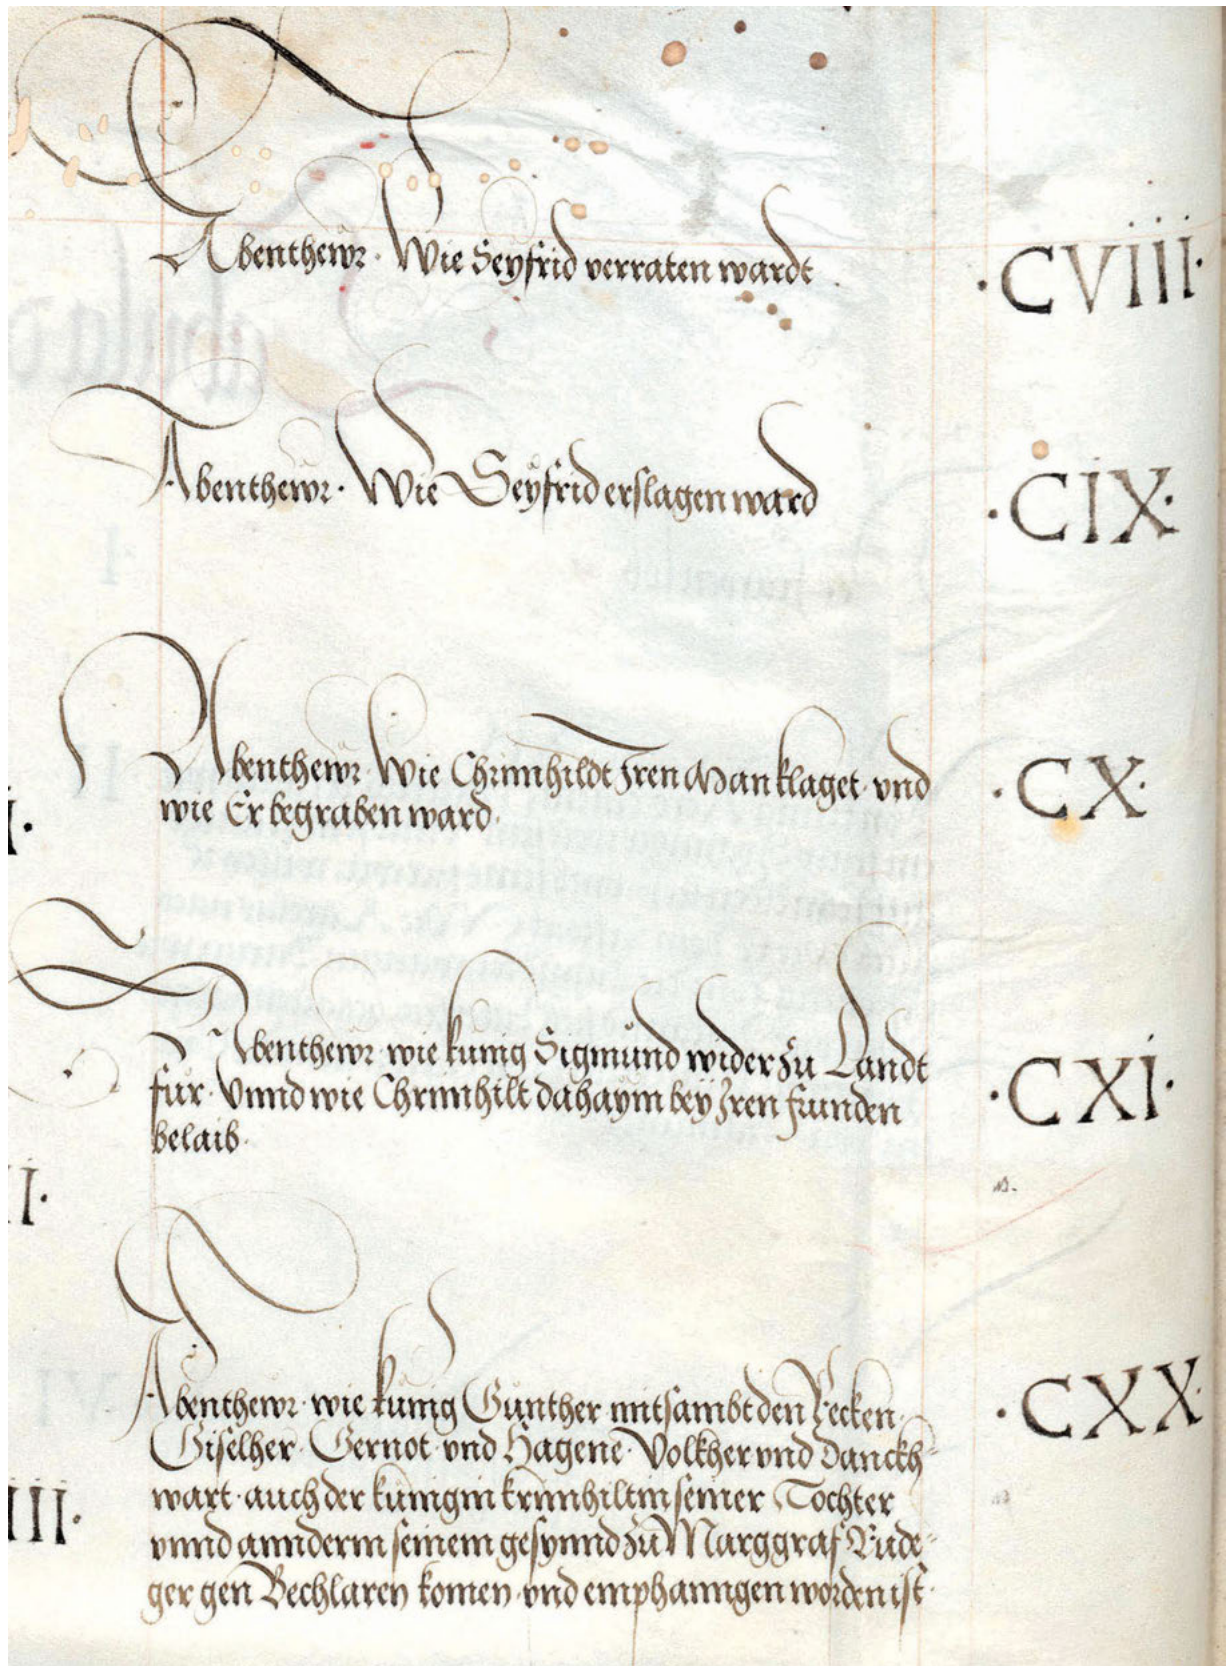 Abenthewr · Wie Seyfrid verraten wardt · CVIII ·
Abenthewr · Wie Seyfrid erslagen ward · CIX ·
Abenthewr · Wie Chrimhildt Jren Man klaget · vnd · CX ·
wie Er begraben ward ·
Abenthewr · wie kunig Sigmund wider zu Landt
fůr · Vnnd wie Chrimhilt dahaym bey Jren freunden · CXI ·
belaib ·
Abenthewr · wie kunig Gunther mitsambt den Recken · · CXX ·
Giselher · Gernot · vnd Hagene · Volkher vnd Danckh-
wart · auch der kunigin krimhiltin seiner Tochter
III ·
vnnd annderm seinem gesynnd zu Marggraf Rude-
ger gen Bechlaren komen · vnd emphanngen worden ist ·